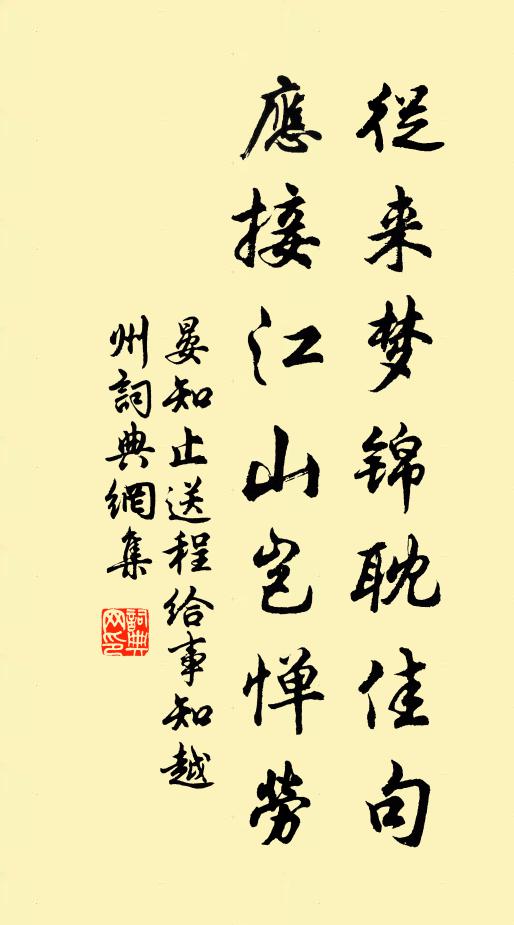 從来梦锦耽佳句
應接江山岂惮勞
晏知止送程给事知越
州詞典網集
詞典
网印